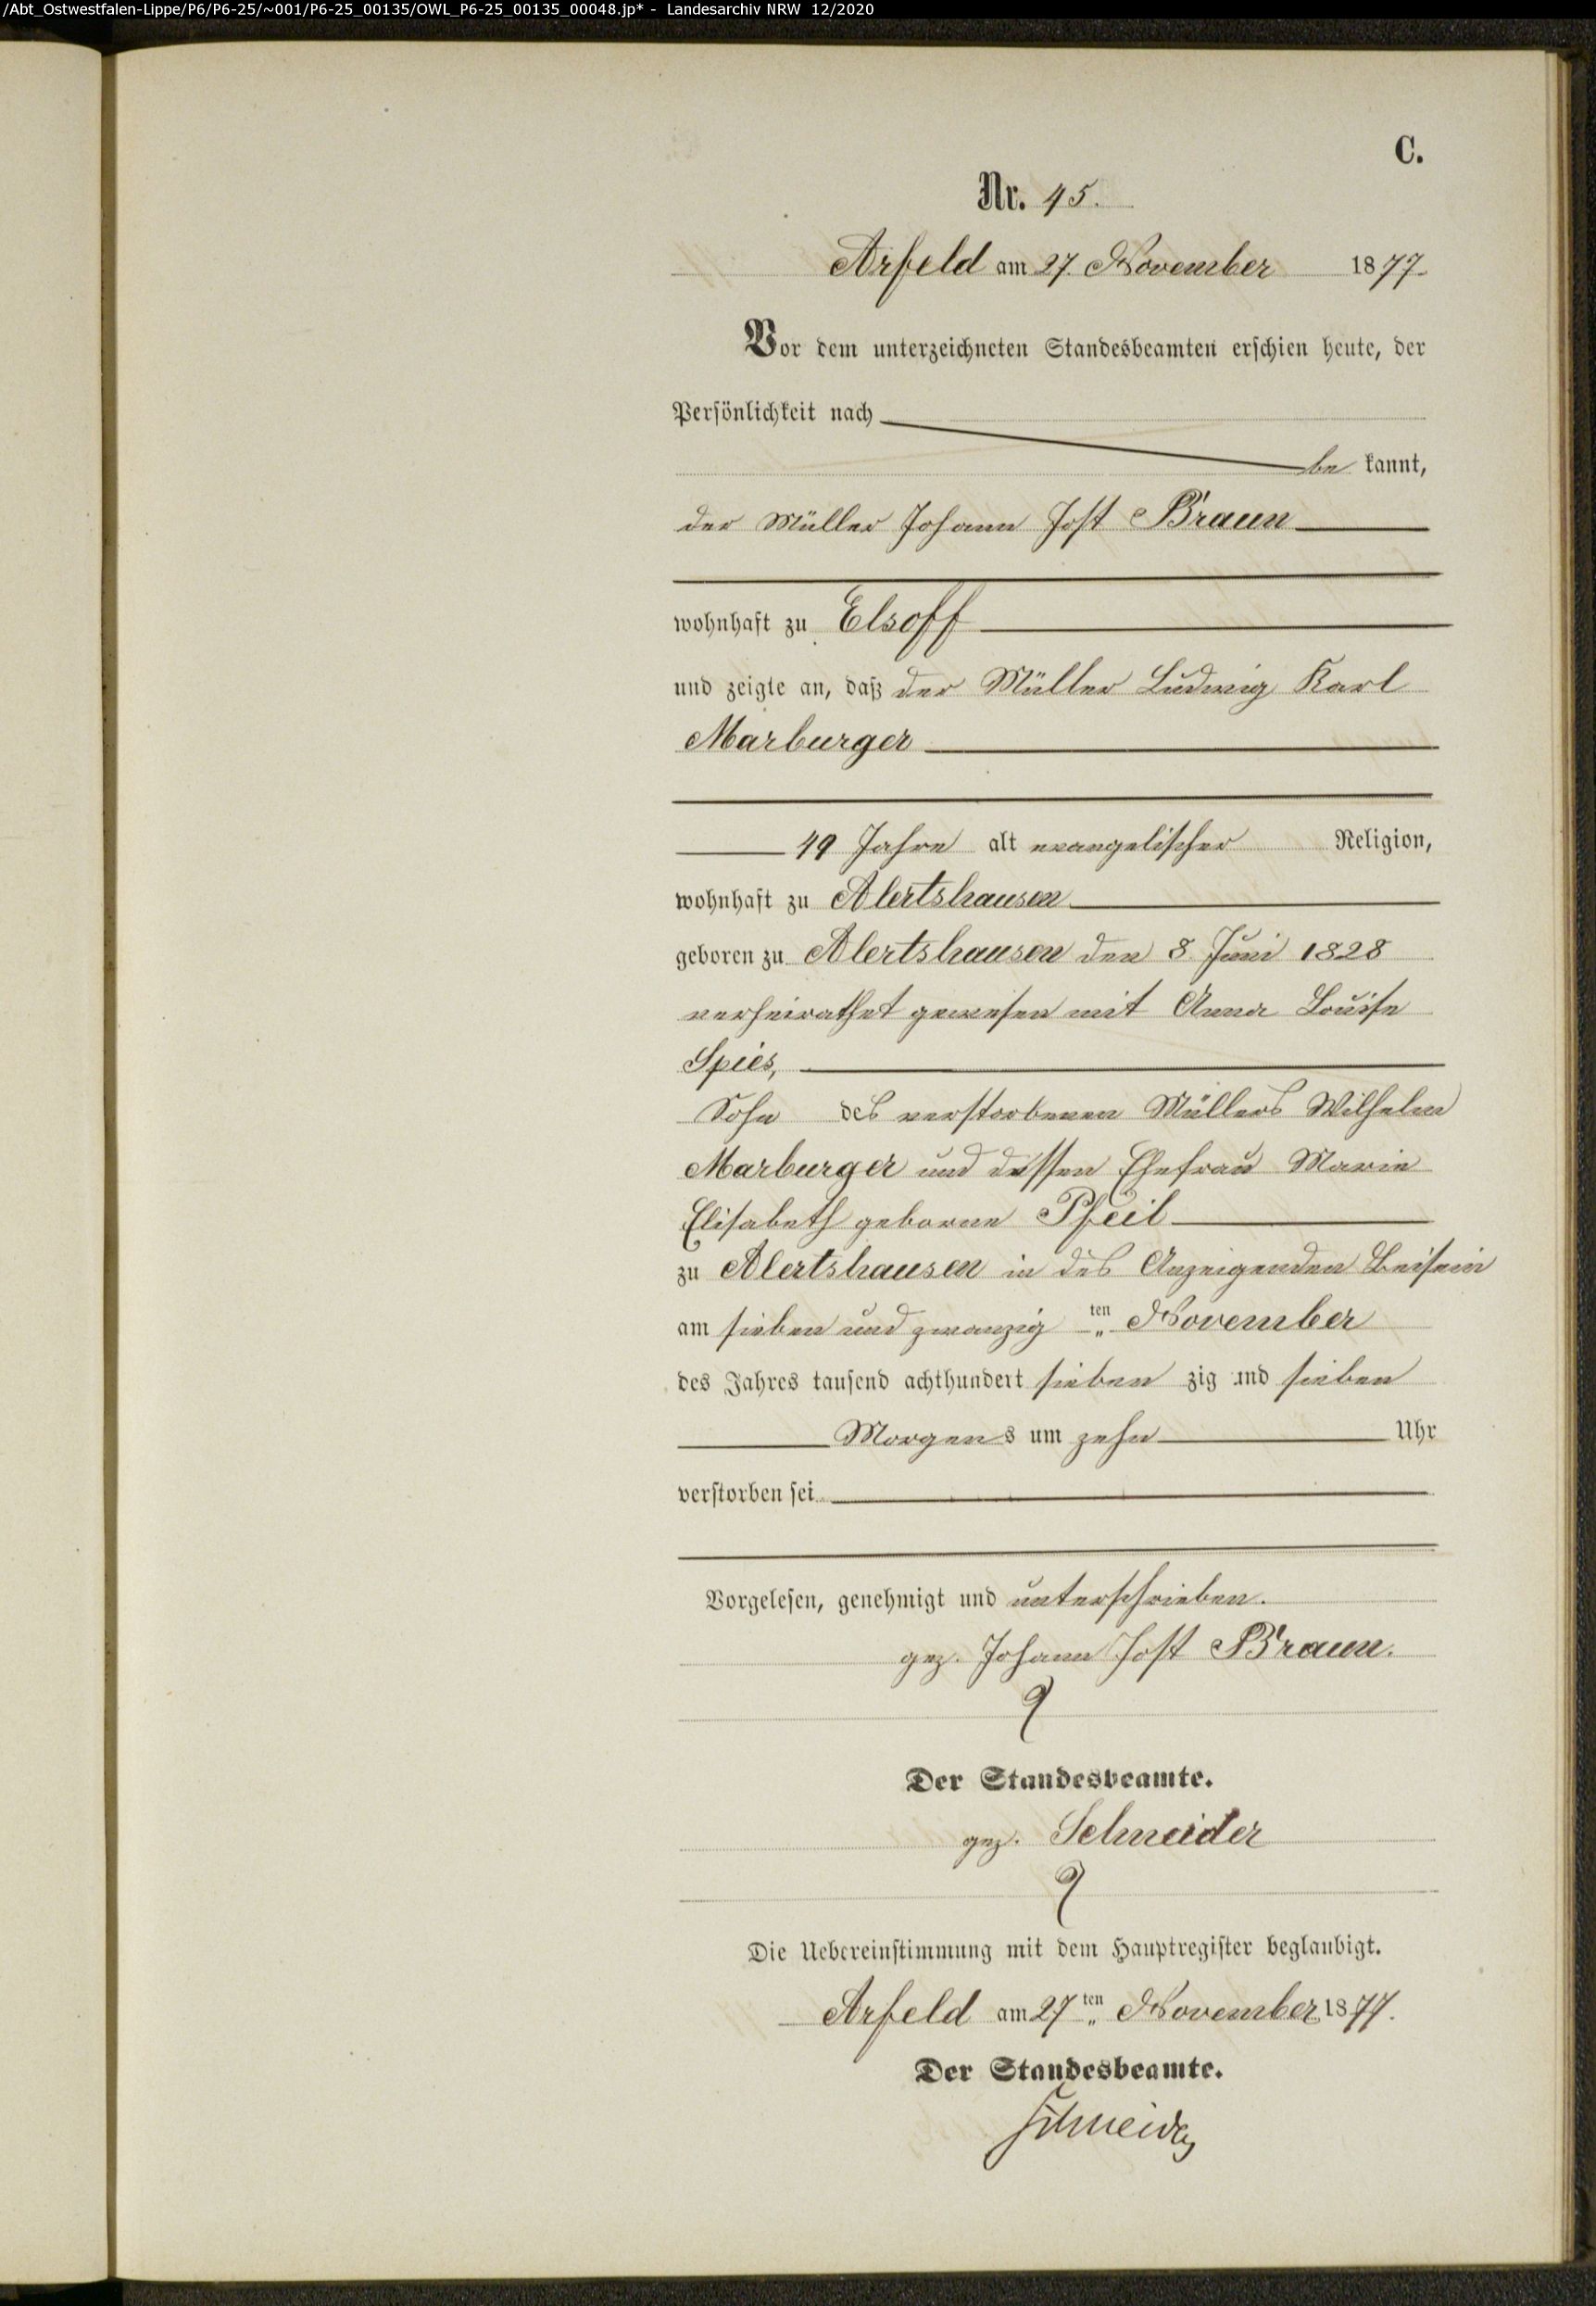 /Abt_Ostwestfalen-Lippe/P6/P6-25/~001/P6-25_00135/OWL_P6-25_00135_00048.jp* - Landesarchiv NRW 12/2020
C.
Nr. 45.
Arfeld am 27. November 1877.
Vor dem unterzeichneten Standesbeamten erschien heute, der
Persönlichkeit nach
be kannt,
der Müller Johann Jost Braun
wohnhaft zu Elsoff
und zeigte an, daß der Müller Ludwig Karl
Marburger
49 Jahre alt evangelischer Religion,
wohnhaft zu Alertshausen
geboren zu Alertshausen den 8. Juni 1828
verheirathet gewesen mit Anna Louise
Spies,
Sohn des verstorbenen Müllers Wilhelm
Marburger und dessen Ehefrau Marie
Elisabeth geborne Pfeil
zu Alertshausen in des Anzeigenden Beisein
am sieben und zwanzig ten November
des Jahres tausend achthundert sieben zig und sieben
Morgens um zehn Uhr
verstorben sei
Vorgelesen, genehmigt und unterschrieben.
gez. Johann Jost Braun.
Der Standesbeamte.
gez. Schneider
Die Uebereinstimmung mit dem Hauptregister beglaubigt.
Arfeld am 27 ten November 1877.
Der Standesbeamte.
Schneider